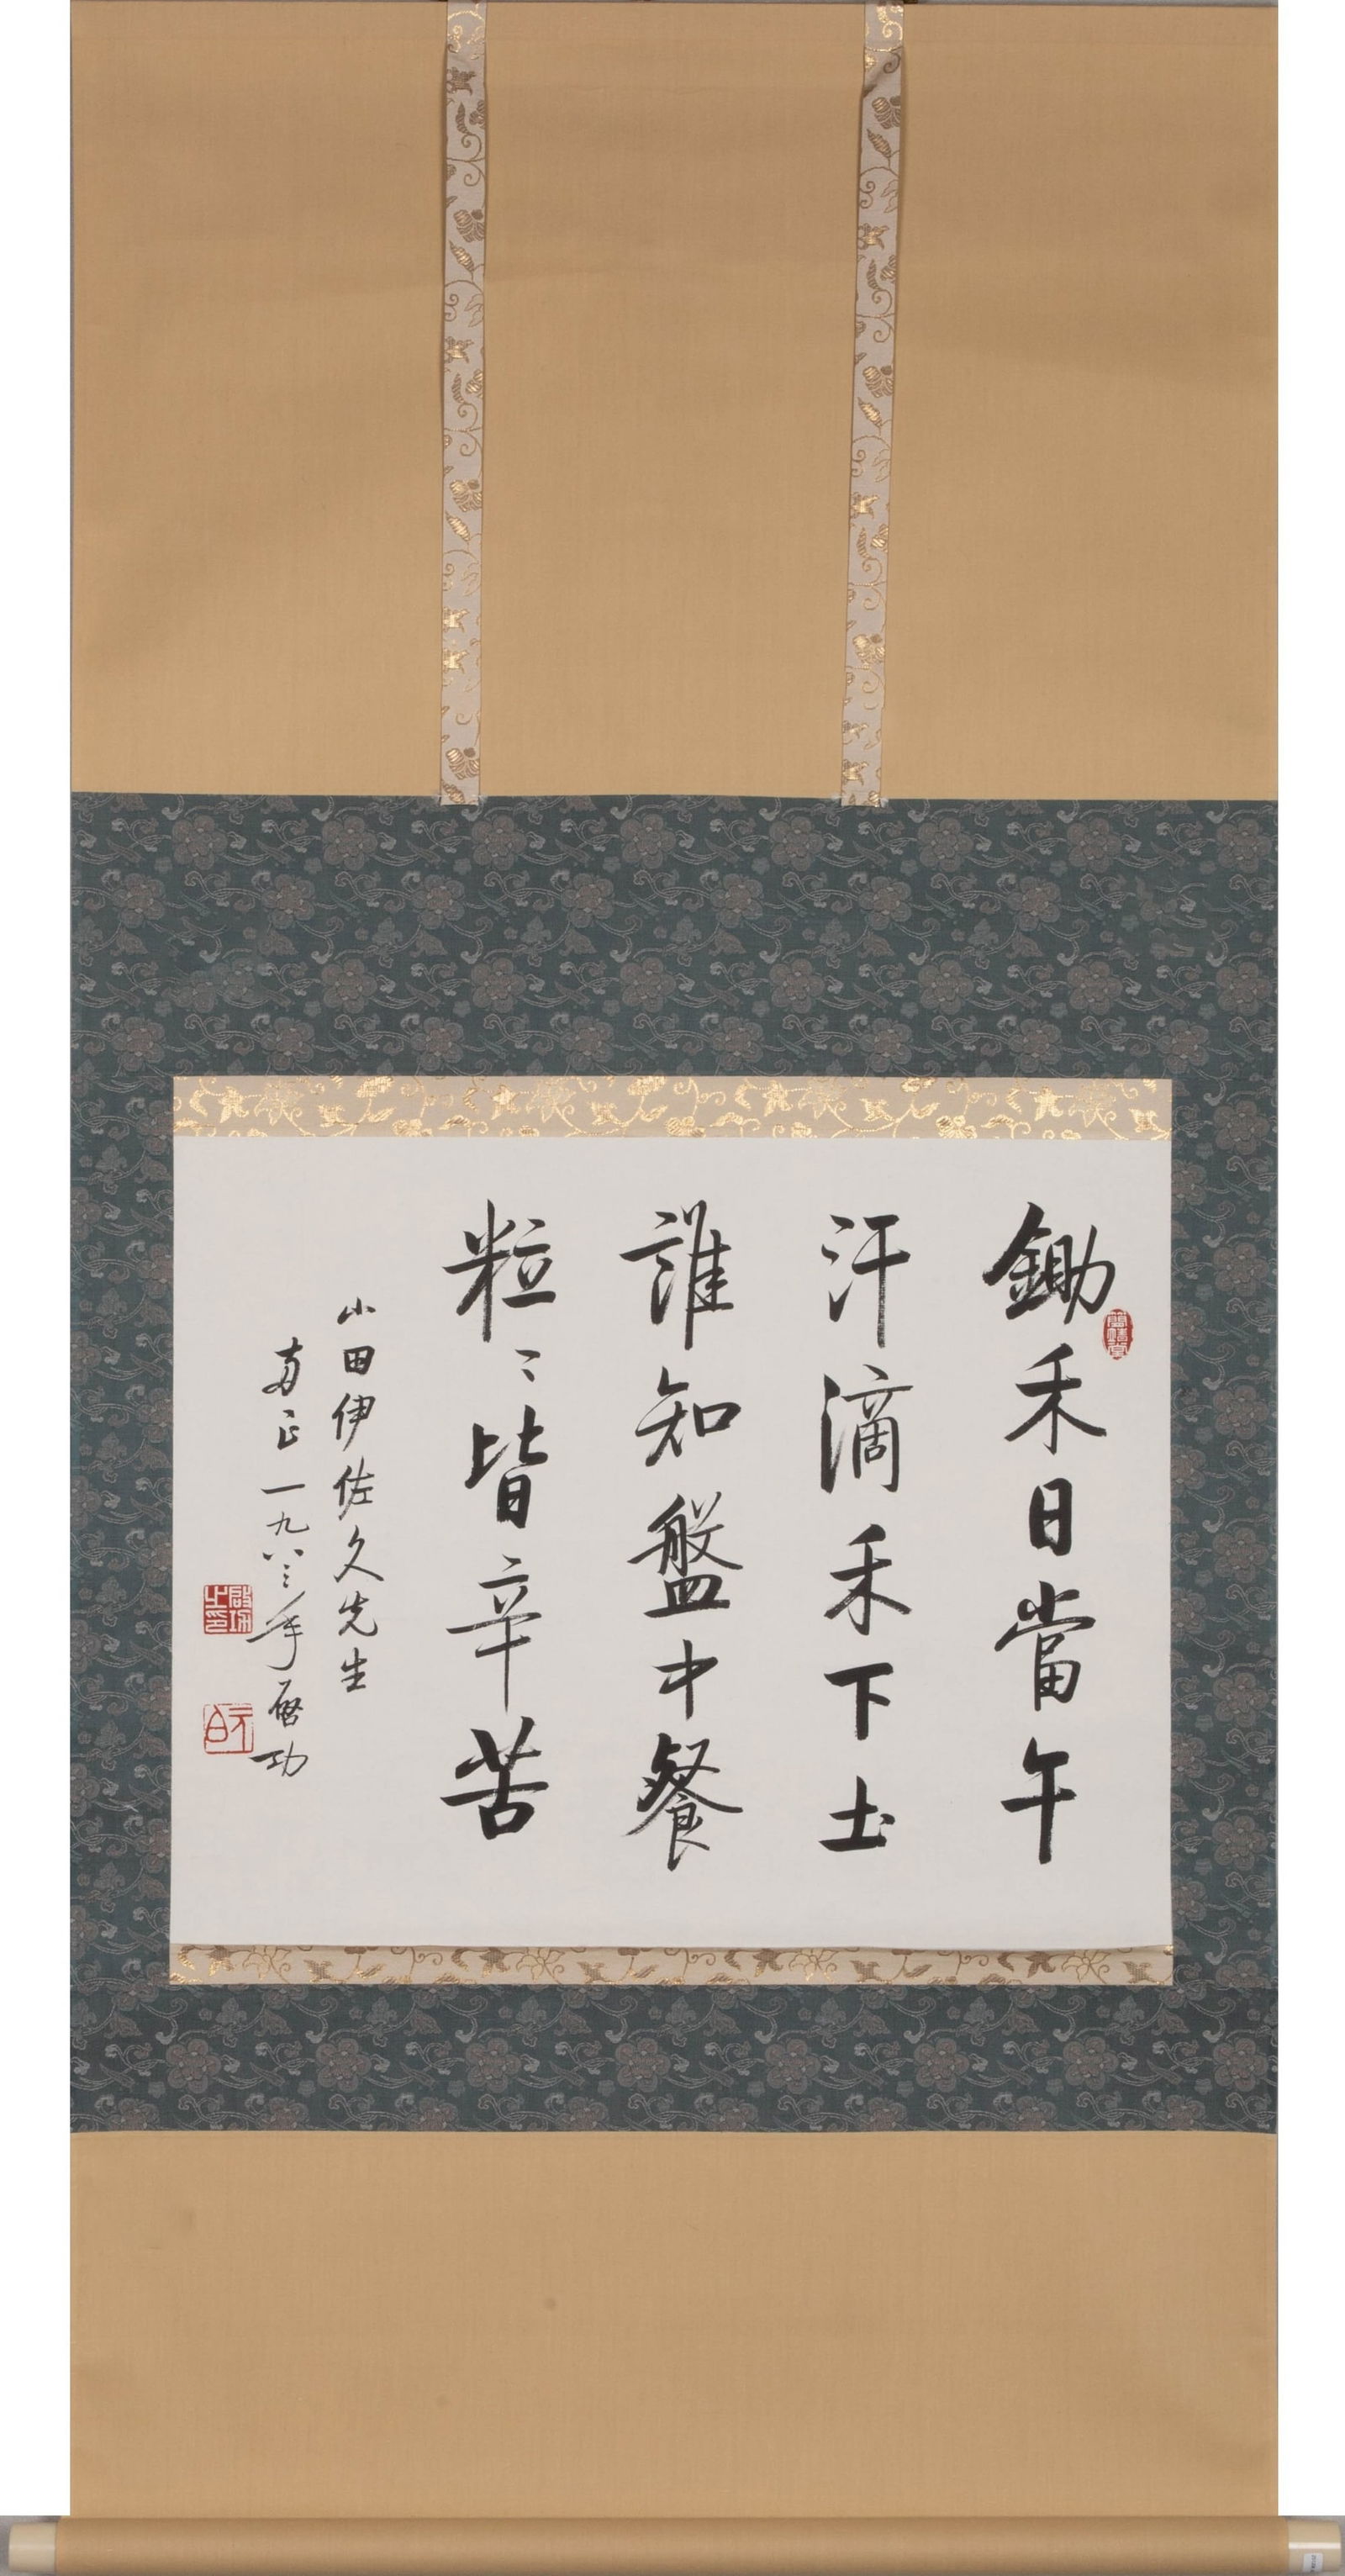 鋤禾日當午
汗滴禾下土
誰知盤中餐
粒〻皆辛苦
小田伊佐久先生
正一九八三年啓功
啓功之印
元白